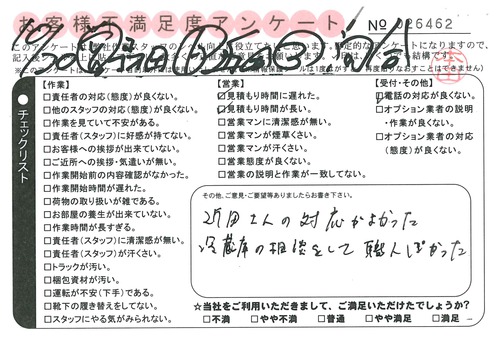 お客様不満足度アンケート
No 026462
チェックリスト
【作業】
□責任者の対応(態度)が良くない。
□他のスタッフの対応(態度)が良くない。
□作業を見ていて不安がある。
□責任者(スタッフ)に好感が持てない。
□お客様への挨拶が出来ていない。
□ご近所への挨拶・気遣いが無い。
□作業開始前の内容確認がなかった。
□作業開始時間が遅れた。
□荷物の取り扱いが雑である。
□お部屋の養生が出来ていない。
□作業時間が長すぎる。
□責任者(スタッフ)に清潔感が無い。
□責任者(スタッフ)が汗くさい。
□トラックが汚い。
□梱包資材が汚い。
□運転が不安(下手)である。
□靴下の履き替えをしてない。
□スタッフにやる気がみられない。
【営業】
□見積もり時間に遅れた。
□見積もり時間が長い。
□営業マンに清潔感が無い。
□営業マンが煙草くさい。
□営業マンが汗くさい。
□営業態度が良くない。
□営業の説明と作業が一致してない。
【受付・その他】
□電話の対応が良くない。
□オプション業者の説明
・作業が良くない。
□オプション業者の対応
(態度)が良くない。
その他、ご意見・ご要望等ありましたらお書き下さい。
さんの対応がよかった
冷蔵庫の相談をして
☆当社をご利用いただきまして、ご満足いただけたでしょうか?
□不満 □やや不満 □普通 □やや満足 □満足